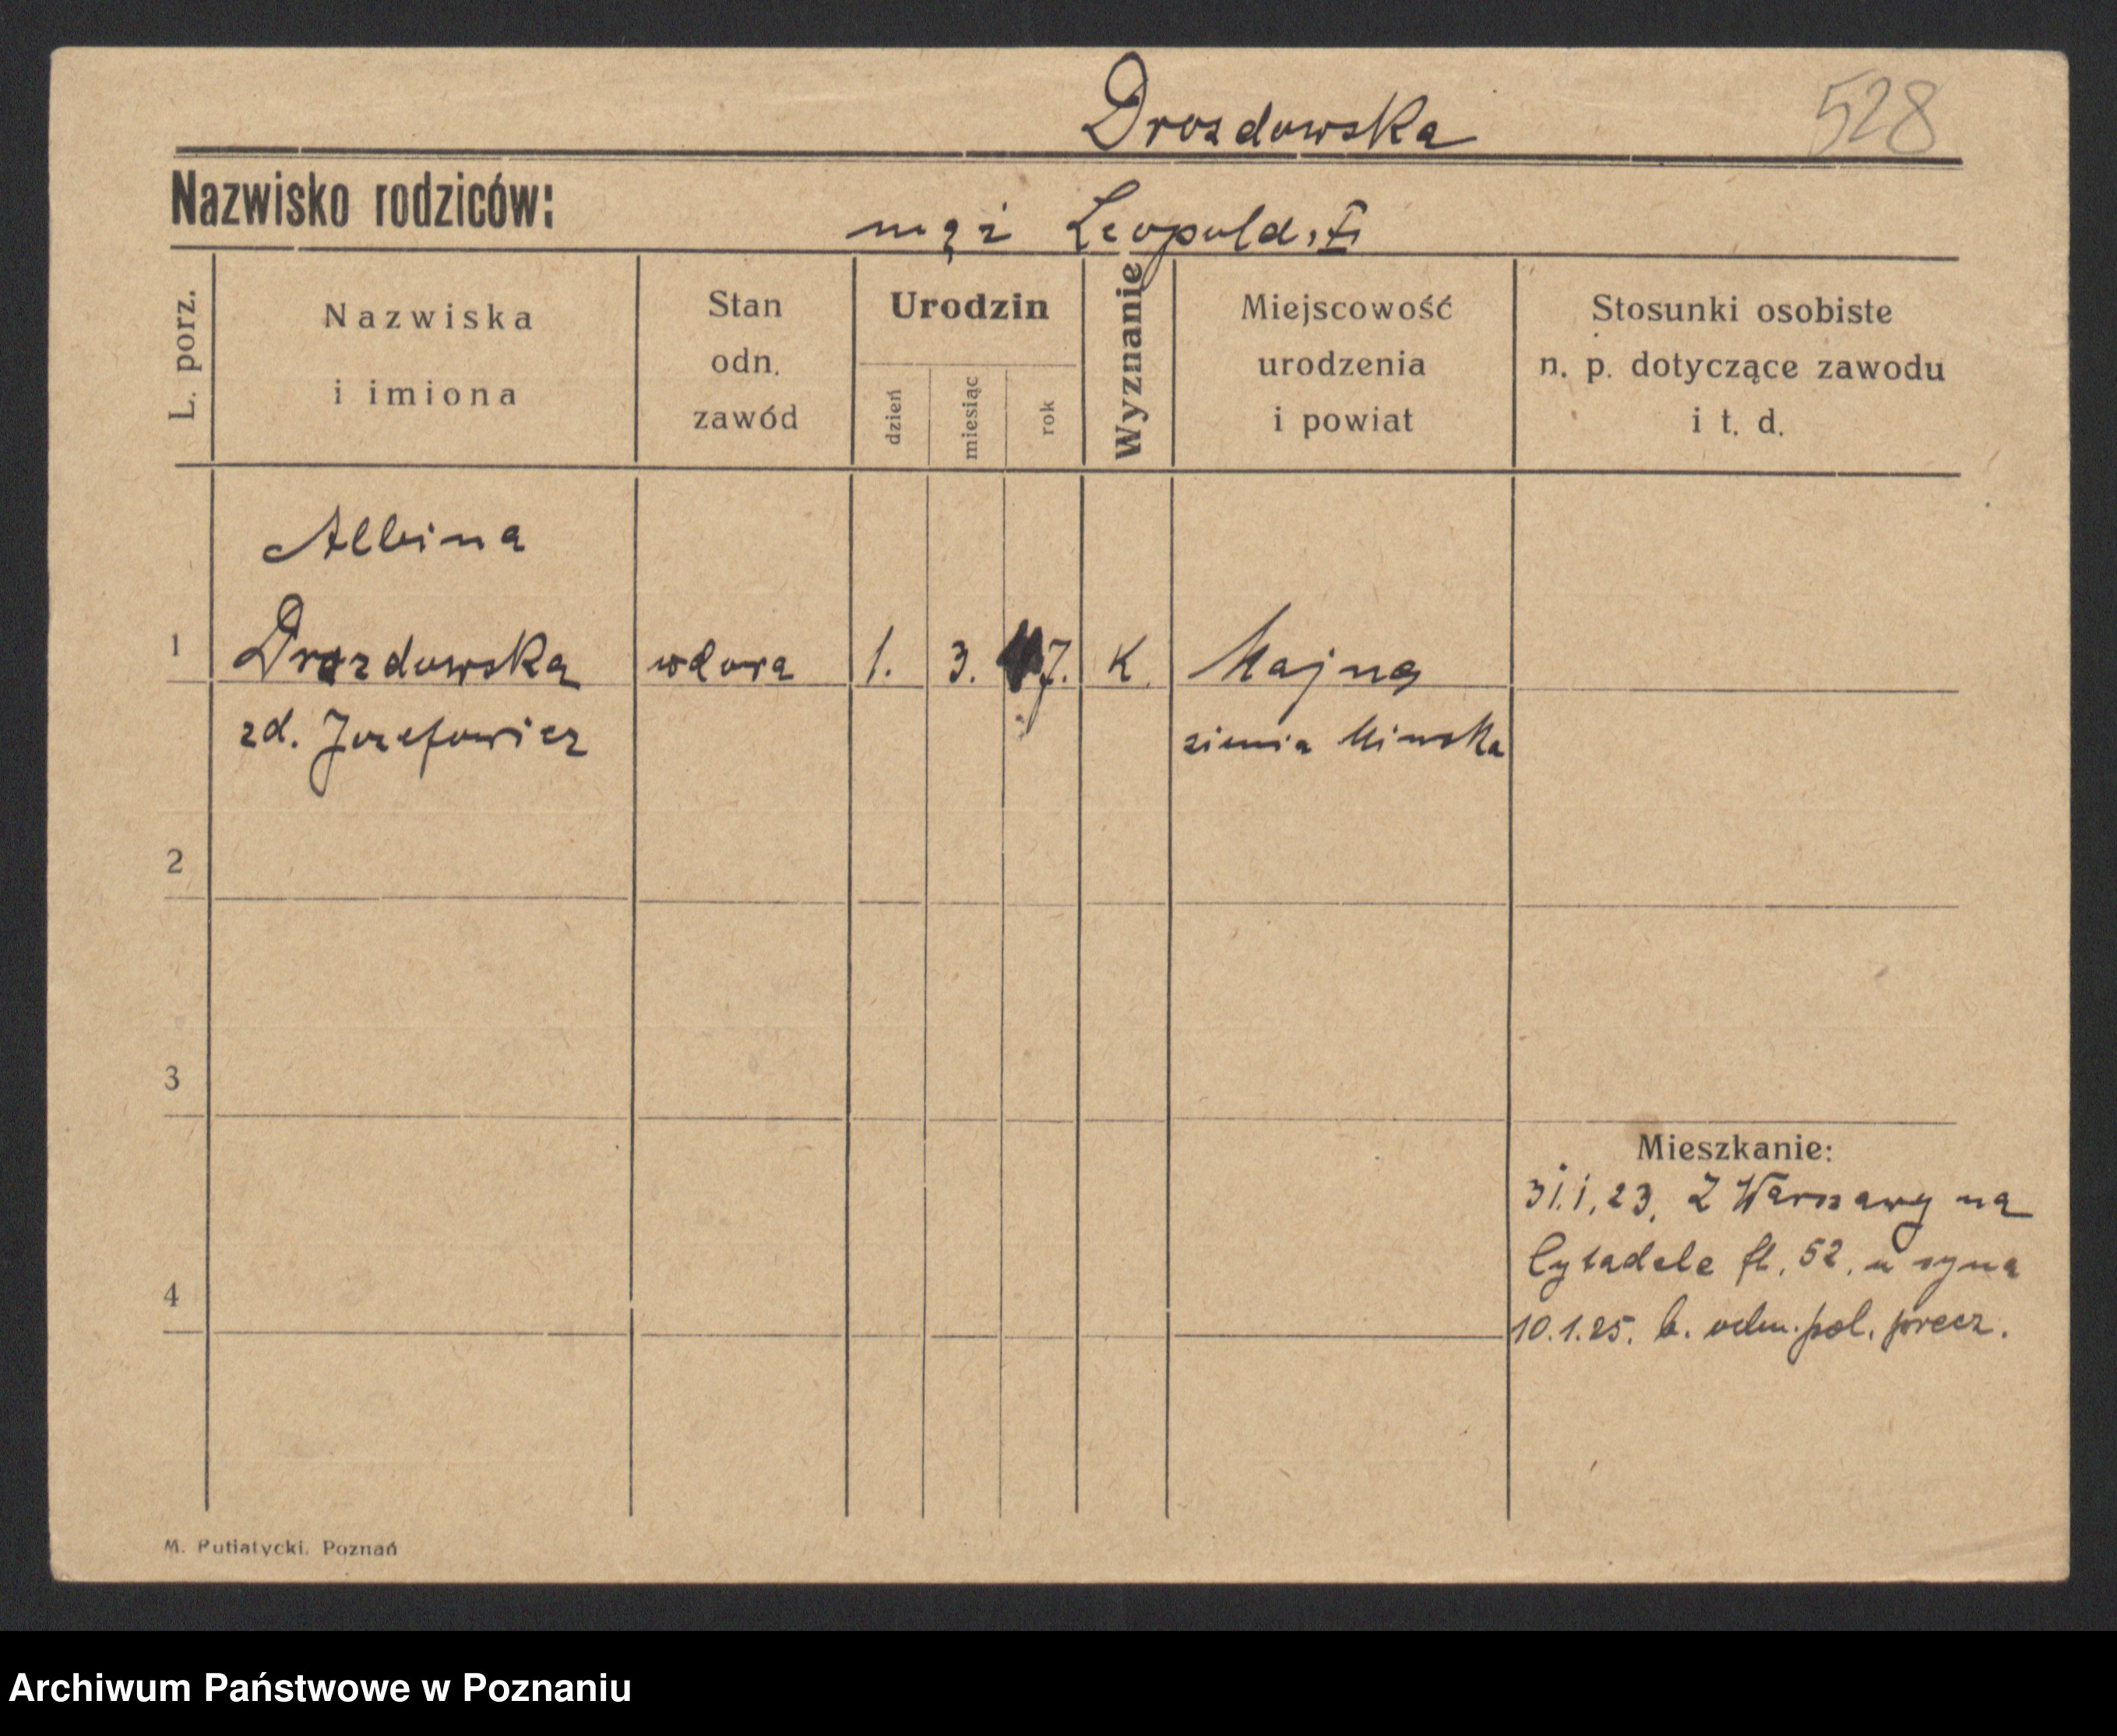 Drozdowska 528
Nazwisko rodziców:
mąż Leopold,
L. porz.
Nazwiska i imiona
Stan odn. zawód
Urodzin
dzień
miesiąc
rok
Wyznanie
Miejscowość urodzenia i powiat
Stosunki osobiste n. p. dotyczące zawodu i t. d.
Albina
1 Drozdowska wdowa 1. 3. 7. K. Majna
zd. Jozefowicz ziemia Minska
2
3
Mieszkanie:
31.1.23. Z Warszawy na
Cytadele fl. 52. u syna
4
10.1.25. b. odm. pol. przez.
M. Putiatycki. Poznań
Archiwum Państwowe w Poznaniu